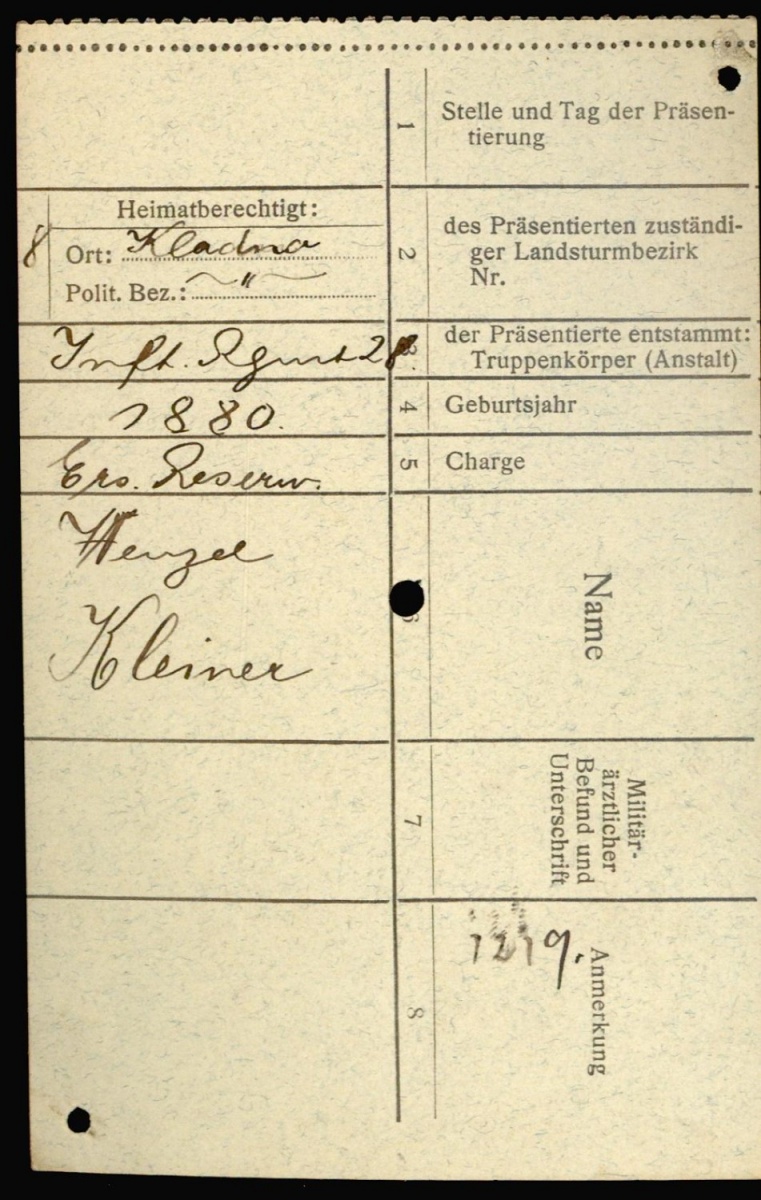 1
Stelle und Tag der Präsen-
tierung
Heimatberechtigt:
8
Ort: Kladno
Polit. Bez.: "
2
des Präsentierten zuständi-
ger Landsturmbezirk
Nr.
Inft. Rgmt 28
3.
der Präsentierte entstammt:
Truppenkörper (Anstalt)
1880.
4
Geburtsjahr
Ers. Reserv.
5
Charge
Wenzel
Kleiner
6
Name
7
Militär-
ärztlicher
Befund und
Unterschrift
8
Anmerkung